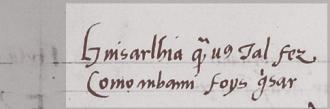 huisarlhia q̃ ug tal fez
Como mbami foys q̃sar